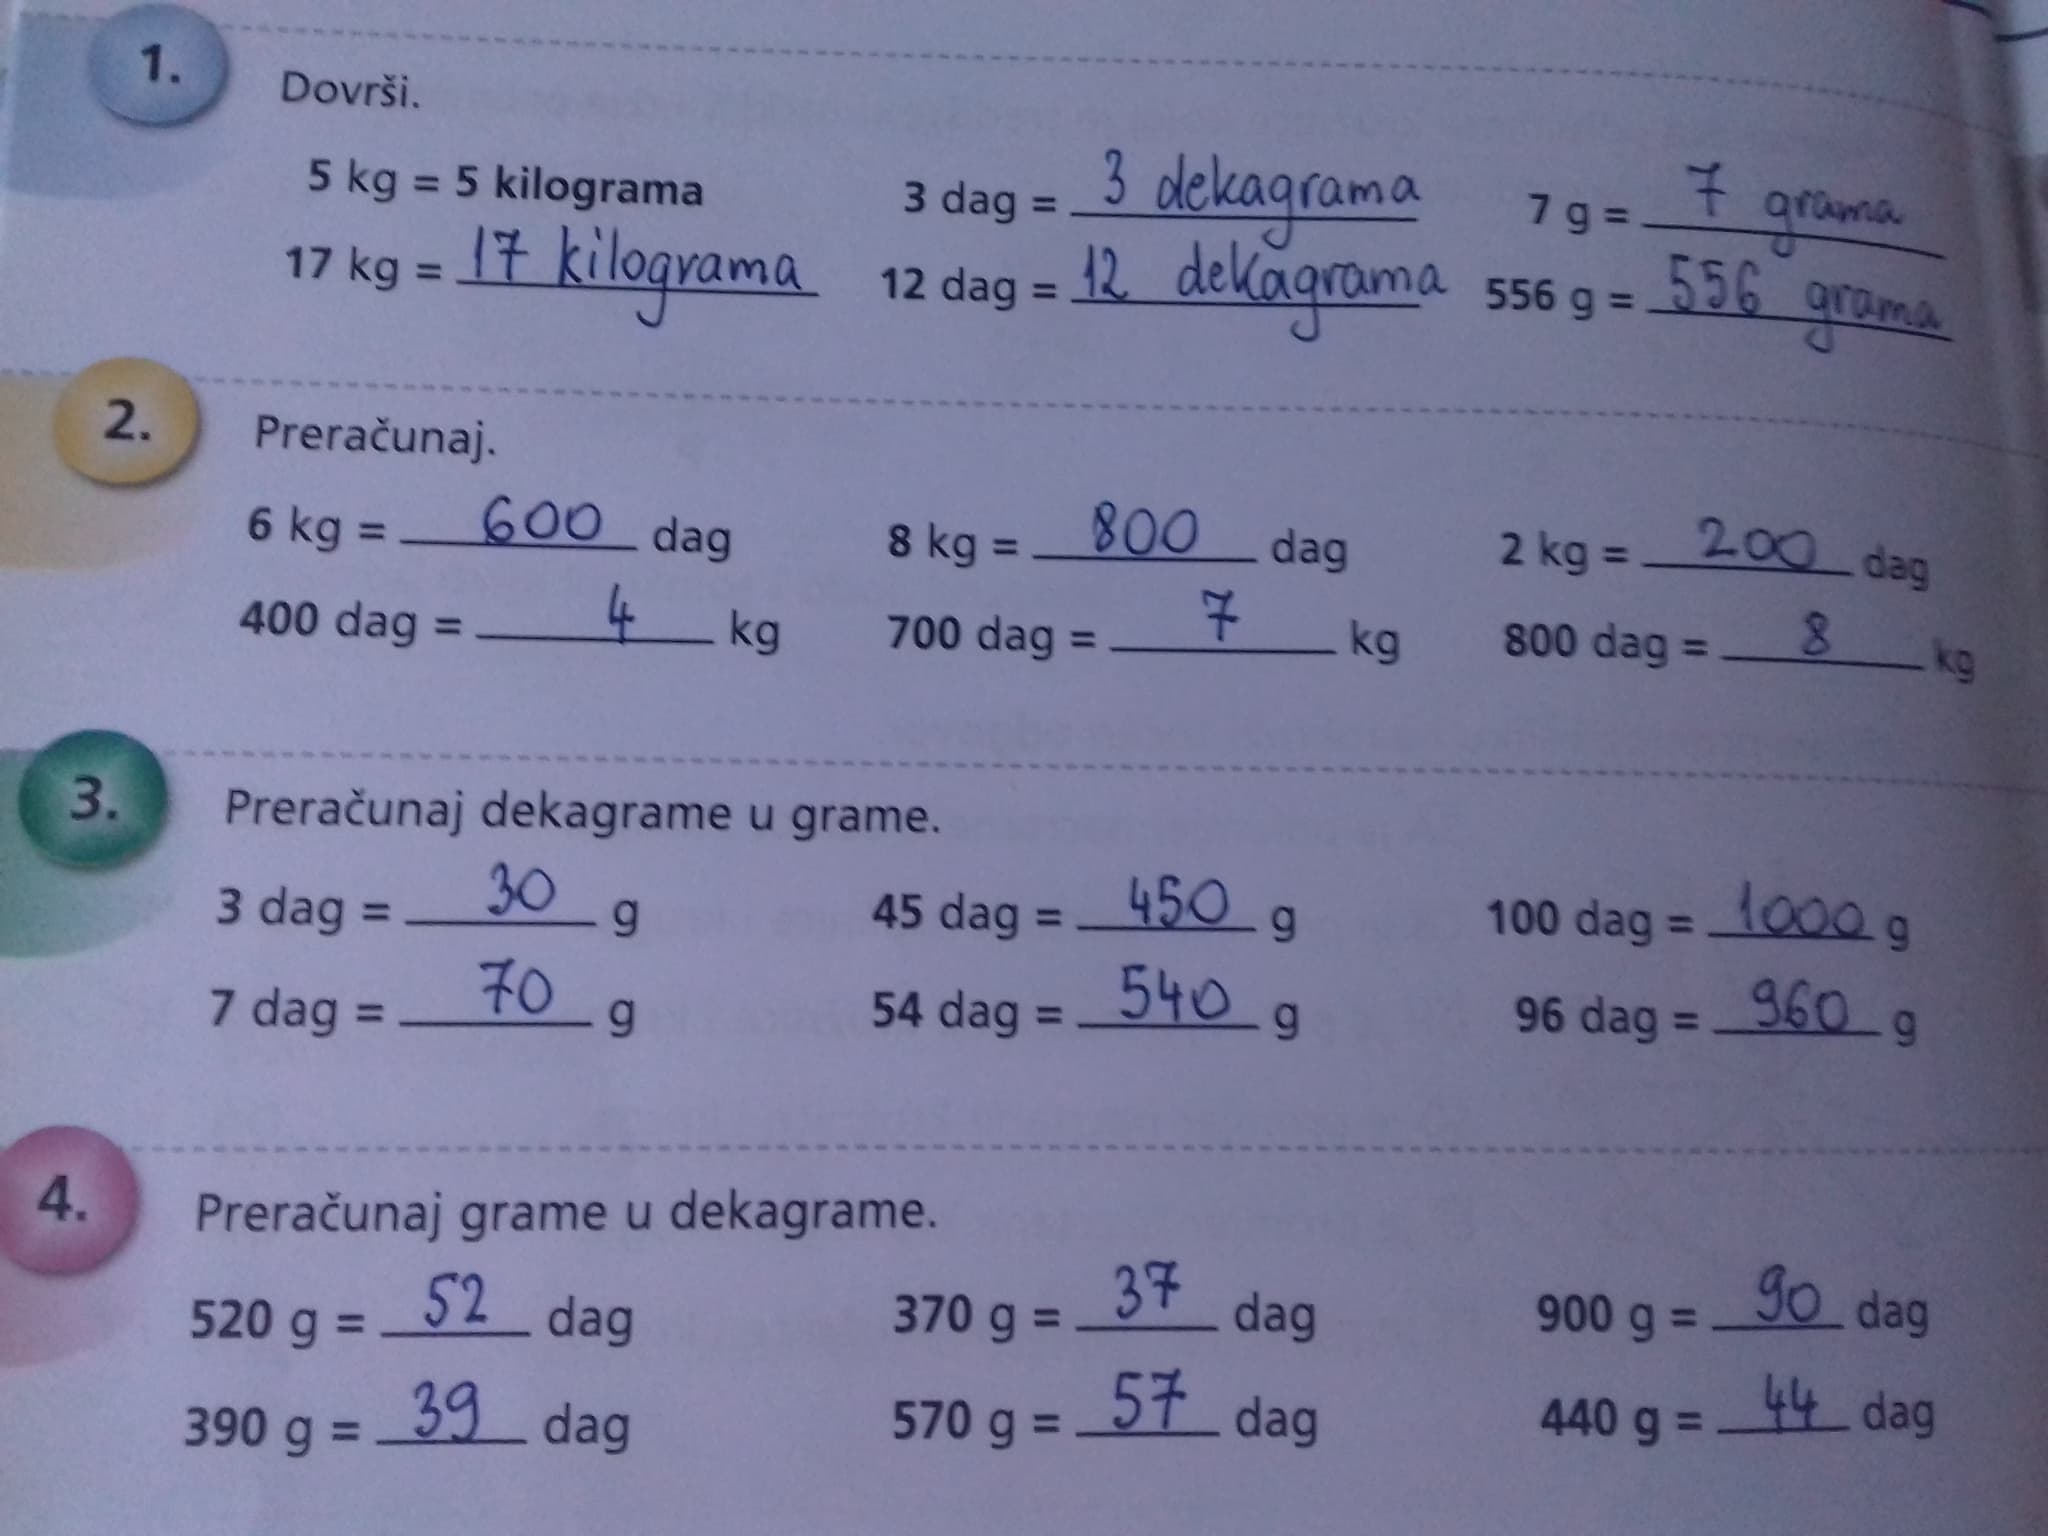 1.
Dovrši.
5 kg = 5 kilograma 3 dag = 3 dekagrama 7 g = 7 grama
17 kg = 17 kilograma 12 dag = 12 dekagrama 556 g = 556 grama
2.
Preračunaj.
6 kg = 600 dag 8 kg = 800 dag 2 kg = 200 dag
400 dag = 4 kg 700 dag = 7 kg 800 dag = 8 kg
3.
Preračunaj dekagrame u grame.
3 dag = 30 g 45 dag = 450 g 100 dag = 1000 g
7 dag = 70 g 54 dag = 540 g 96 dag = 960 g
4.
Preračunaj grame u dekagrame.
520 g = 52 dag 370 g = 37 dag 900 g = 90 dag
390 g = 39 dag 570 g = 57 dag 440 g = 44 dag